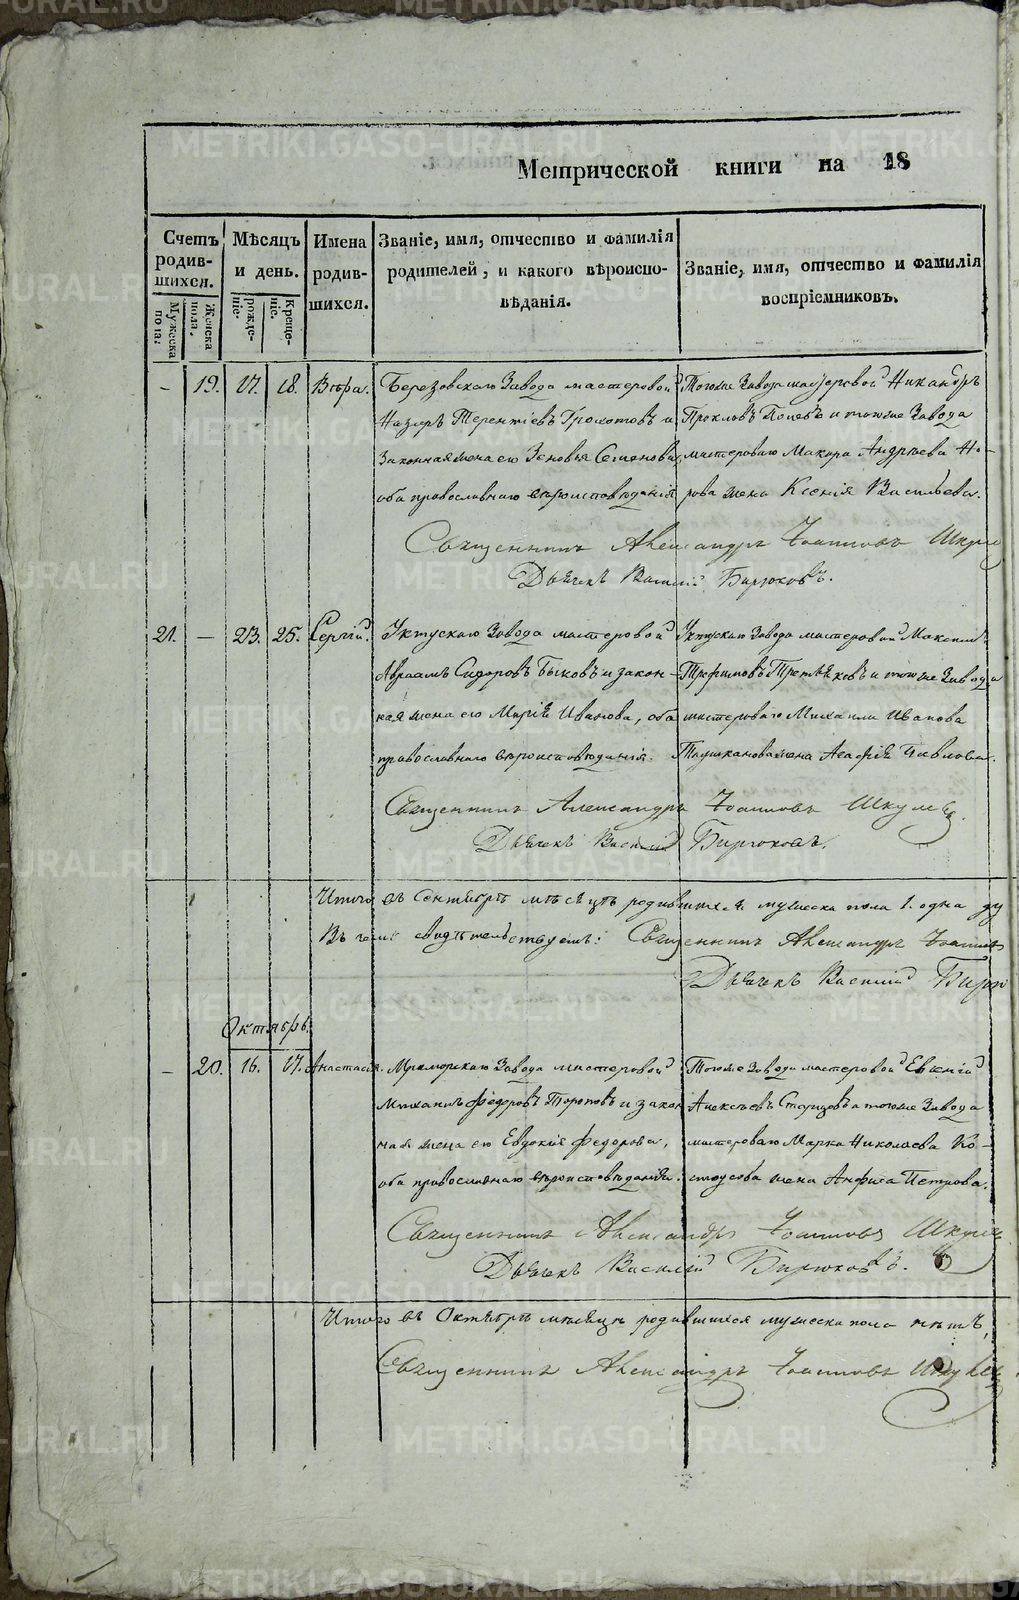 Метрической книги на 18
Счетъ родив-шихся.
Мѣсяцъ и день.
Имена родив-шихся.
Званіе, имя, отчество и фамилія родителей, и какого вѣроиспо-вѣданія.
Званіе, имя, отчество и фамилія воспріемниковъ.
Мужеска пола.
Женска пола.
рожде-ніе.
креще-ніе.
— 19. 17. 18. Вѣра.
Березовскаго Завода мастеровой
Назаръ Терентіевъ и
Законная жена его Зеновья Семенова
оба православнаго вѣроисповѣданія
Тогоже Завода мастеровой Никандръ
Прокловъ и тогоже Завода
мастероваго Макара Андреева
рова жена Ксенія Васильева.
Священникъ Александръ Іоанновъ
Дьячекъ Василій Бирюковъ.
21. — 23. 25. Сергій
Уктускаго Завода мастеровой
Авраамъ Сидоровъ Быковъ и закон-
ная жена его Марія Иванова, оба
православнаго вѣроисповѣданія.
Уктускаго Завода мастеровой Максимъ
Трефиловъ Третьяковъ и тогоже Завода
мастероваго Михаила Иванова
жена Агафія Павлова.
Священникъ Александръ Іоанновъ
Дьячекъ Василій Бирюковъ.
Итого въ Сентябрѣ мѣсяцѣ родившихся мужеска пола 1. одна ду
Въ чемъ свидѣтельствуемъ: Священникъ Александръ Іоаннов
Дьячекъ Василій Бирю
Октябрь.
— 20. 16. 17. Анастасія.
Мраморскаго Завода мастеровой
Михаилъ Федоровъ Тороповъ и закон
ная жена его Евдокія Федорова,
оба православнаго вѣроисповѣданія.
Тогоже Завода мастеровой Евгеній
Алексѣевъ и тогоже Завода
мастероваго Марка Николаева Ко-
стоусова жена Анфиса Петрова.
Священникъ Александръ Іоанновъ
Дьячекъ Василій Бирюковъ.
Итого въ Октябрѣ мѣсяцѣ родившихся мужеска пола нѣтъ,
Священникъ Александръ Іоанновъ
METRIKI.GASO-URAL.RU